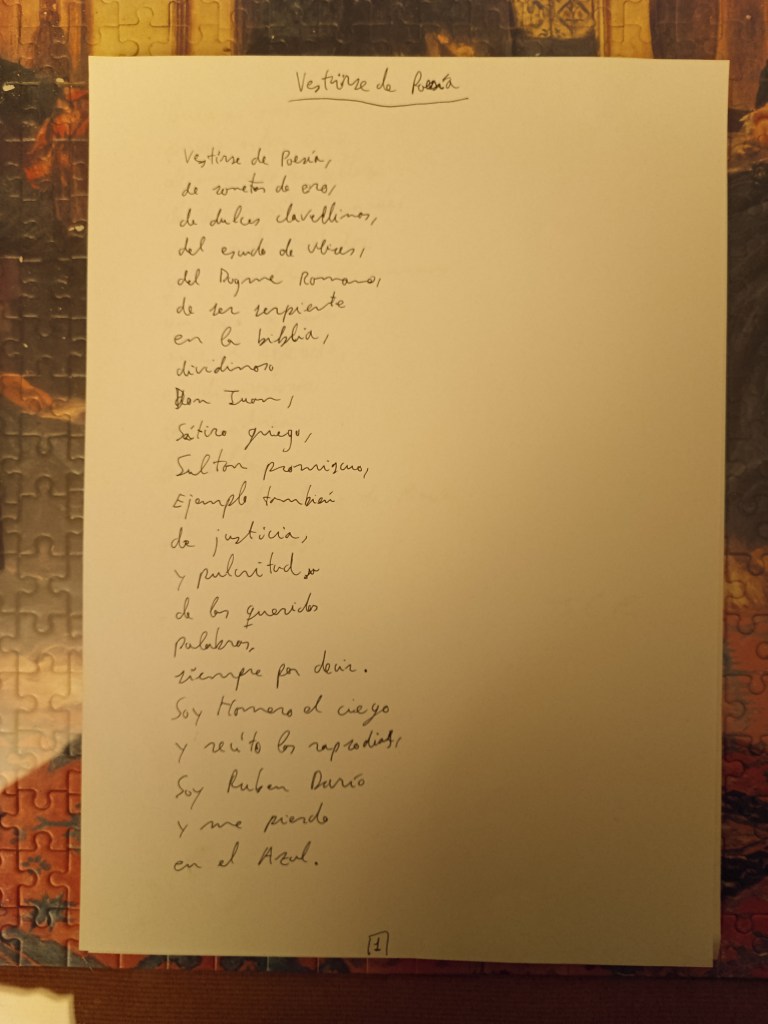 Vestirse de Poesía
Vestirse de Poesía,
de sonetos de oro,
de dulces clavellinos,
del escudo de Ulises,
del Dogma Romano,
de ser serpiente
en la biblia,
dividinoso
Don Juan,
Sátiro griego,
Sultan promiscuo,
Ejemplo también
de justicia,
y pulcritud
de las queridas
palabras,
siempre por decir.
Soy Homero el ciego
y recito las rapsodias,
Soy Ruben Darío
y me pierdo
en el Azul.
1